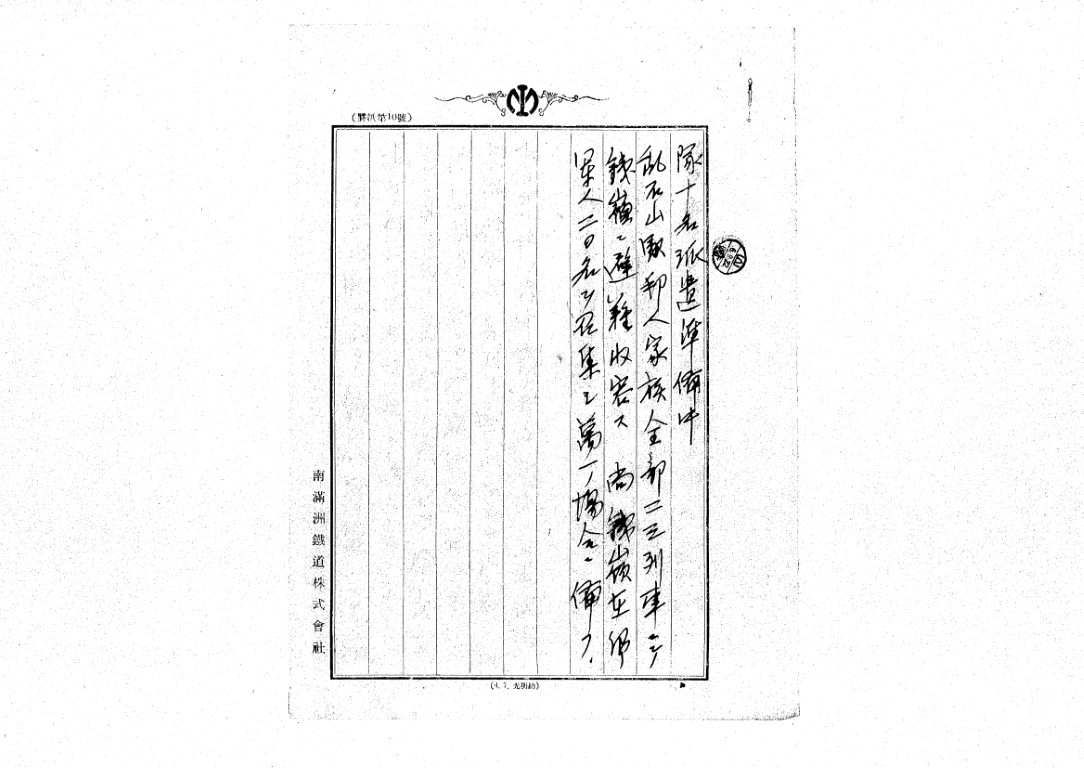 (罫紙第10號)
隊十名派遣準備中
乱石山駅邦人家族全部二三列車ニテ
鉄嶺ニ避難収容ス 尚鉄嶺在郷
軍人二〇名ヲ召集シ萬一ノ場合ニ備フ.
南滿洲鐵道株式會社